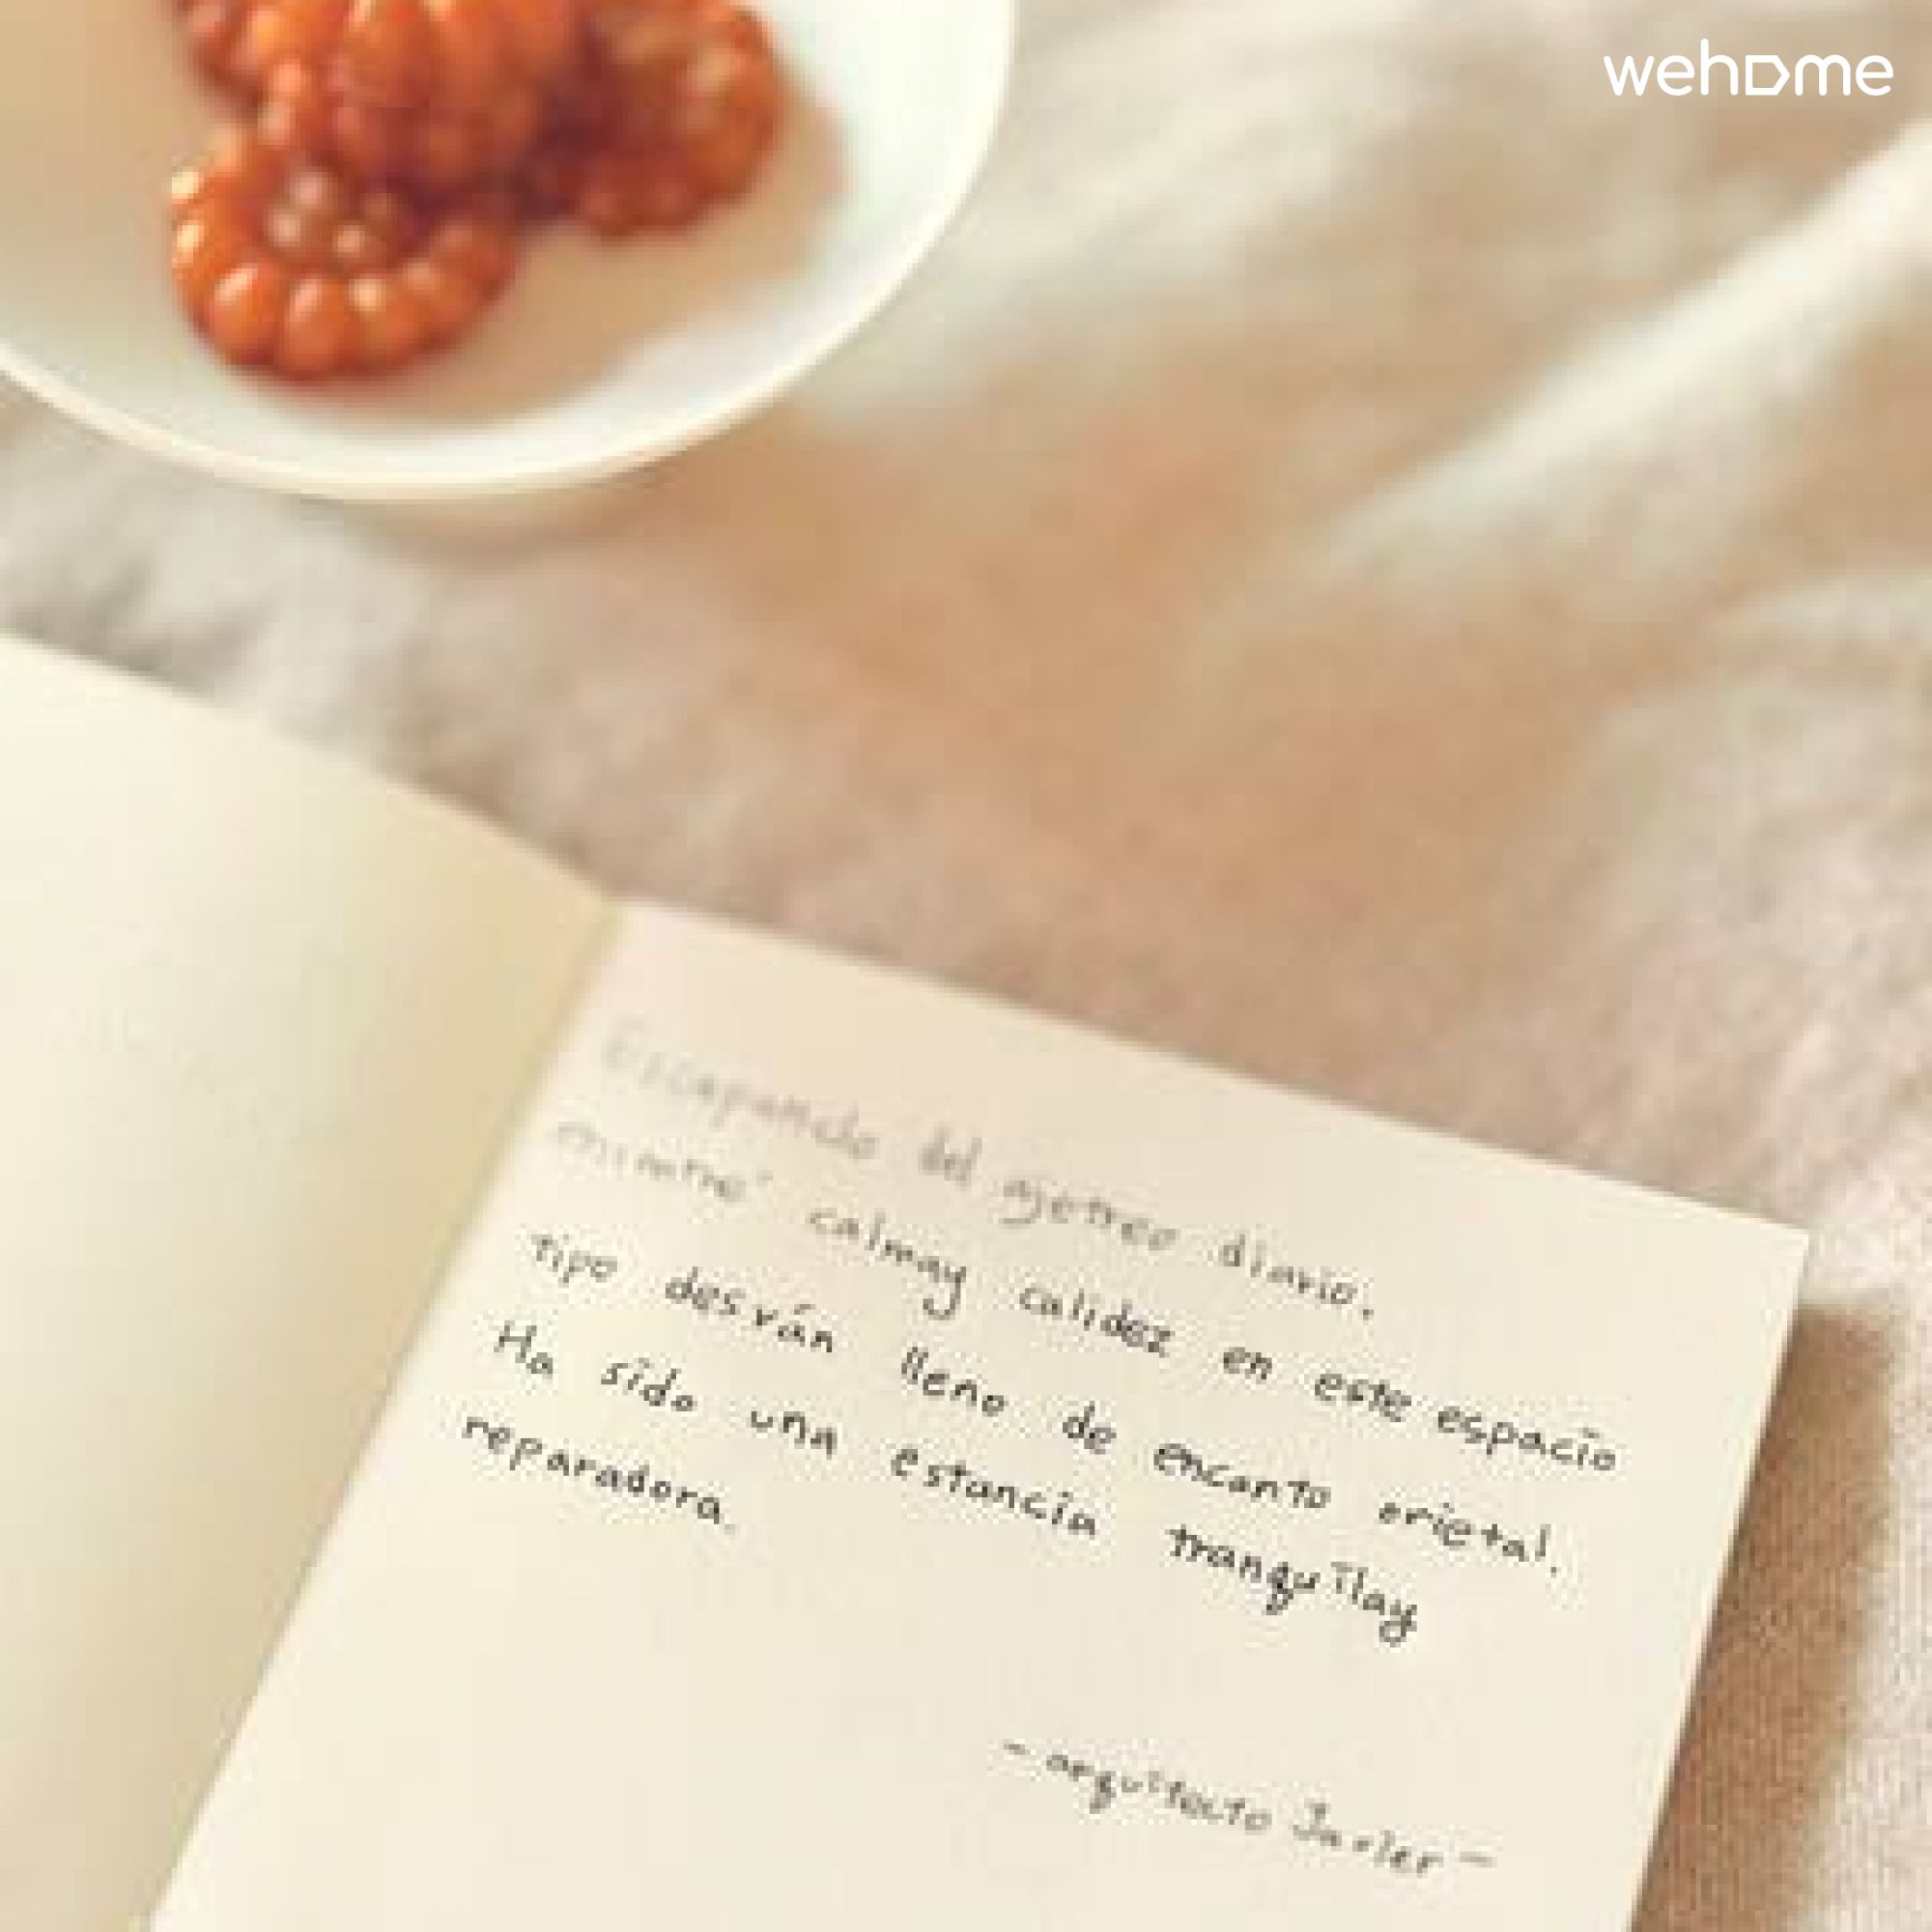 wehome
Escapando del ajetreo diario.
calmay calidez en este espacio
tipo desván lleno de encanto orietal.
Ha sido una estancia tranquilay
reparadora.
- arquitecto Javier -